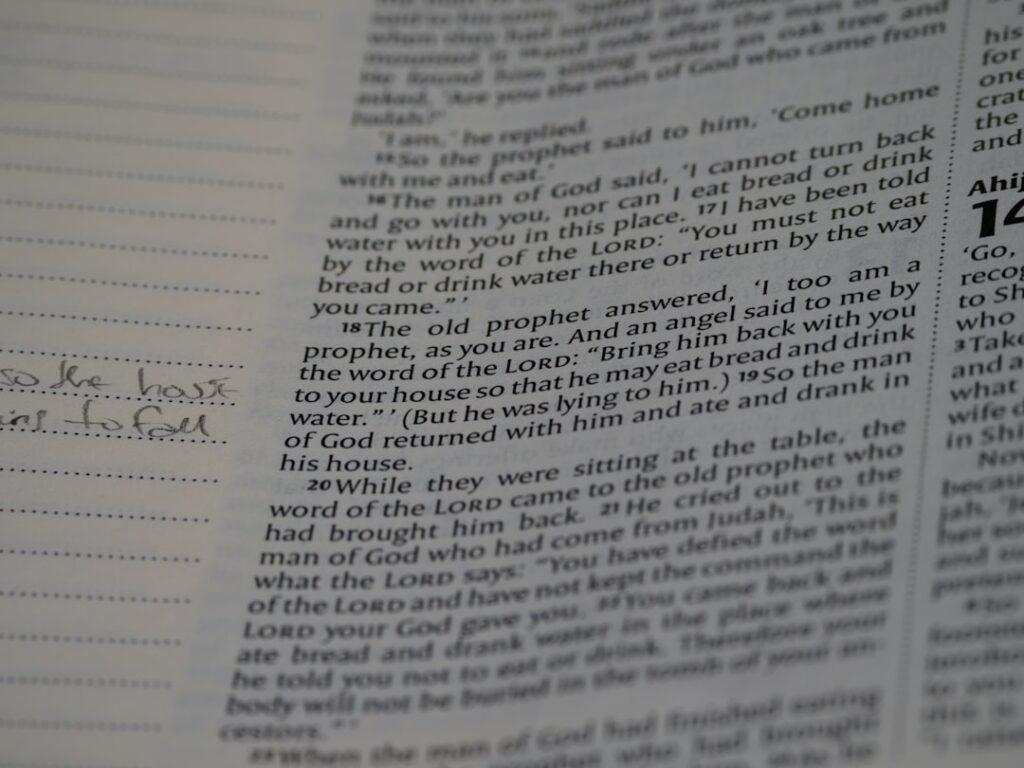 so the hous
to fall
when they had saddled the donkey
mounted it 14and rode after the man of
He found him sitting under an oak tree and
asked, 'Are you the man of God who came from
Judah?'
'I am,' he replied.
15So the prophet said to him, 'Come home
with me and eat.'
16The man of God said, 'I cannot turn back
and go with you, nor can I eat bread or drink
water with you in this place. 17I have been told
by the word of the LORD: "You must not eat
bread or drink water there or return by the way
you came."'
18The old prophet answered, 'I too am a
prophet, as you are. And an angel said to me by
the word of the LORD: "Bring him back with you
to your house so that he may eat bread and drink
water."' (But he was lying to him.) 19So the man
of God returned with him and ate and drank in
his house.
20While they were sitting at the table, the
word of the LORD came to the old prophet who
had brought him back. 21He cried out to the
man of God who had come from Judah, 'This is
what the LORD says: "You have defied the word
of the LORD and have not kept the command the
LORD your God gave you. 22You came back and
ate bread and drank water in the place where
he told you not to eat or drink. Therefore your
body will not be buried in the tomb of your an-
cestors."'
23When the man of God had finished eating
prophet who had brought
his
for
one
crat
the
and
Ahij
14
'Go,
recog
to Sh
who
3Take
and a
what
wife d
in Shi
Now
becau
jah, 'Je
her so
and